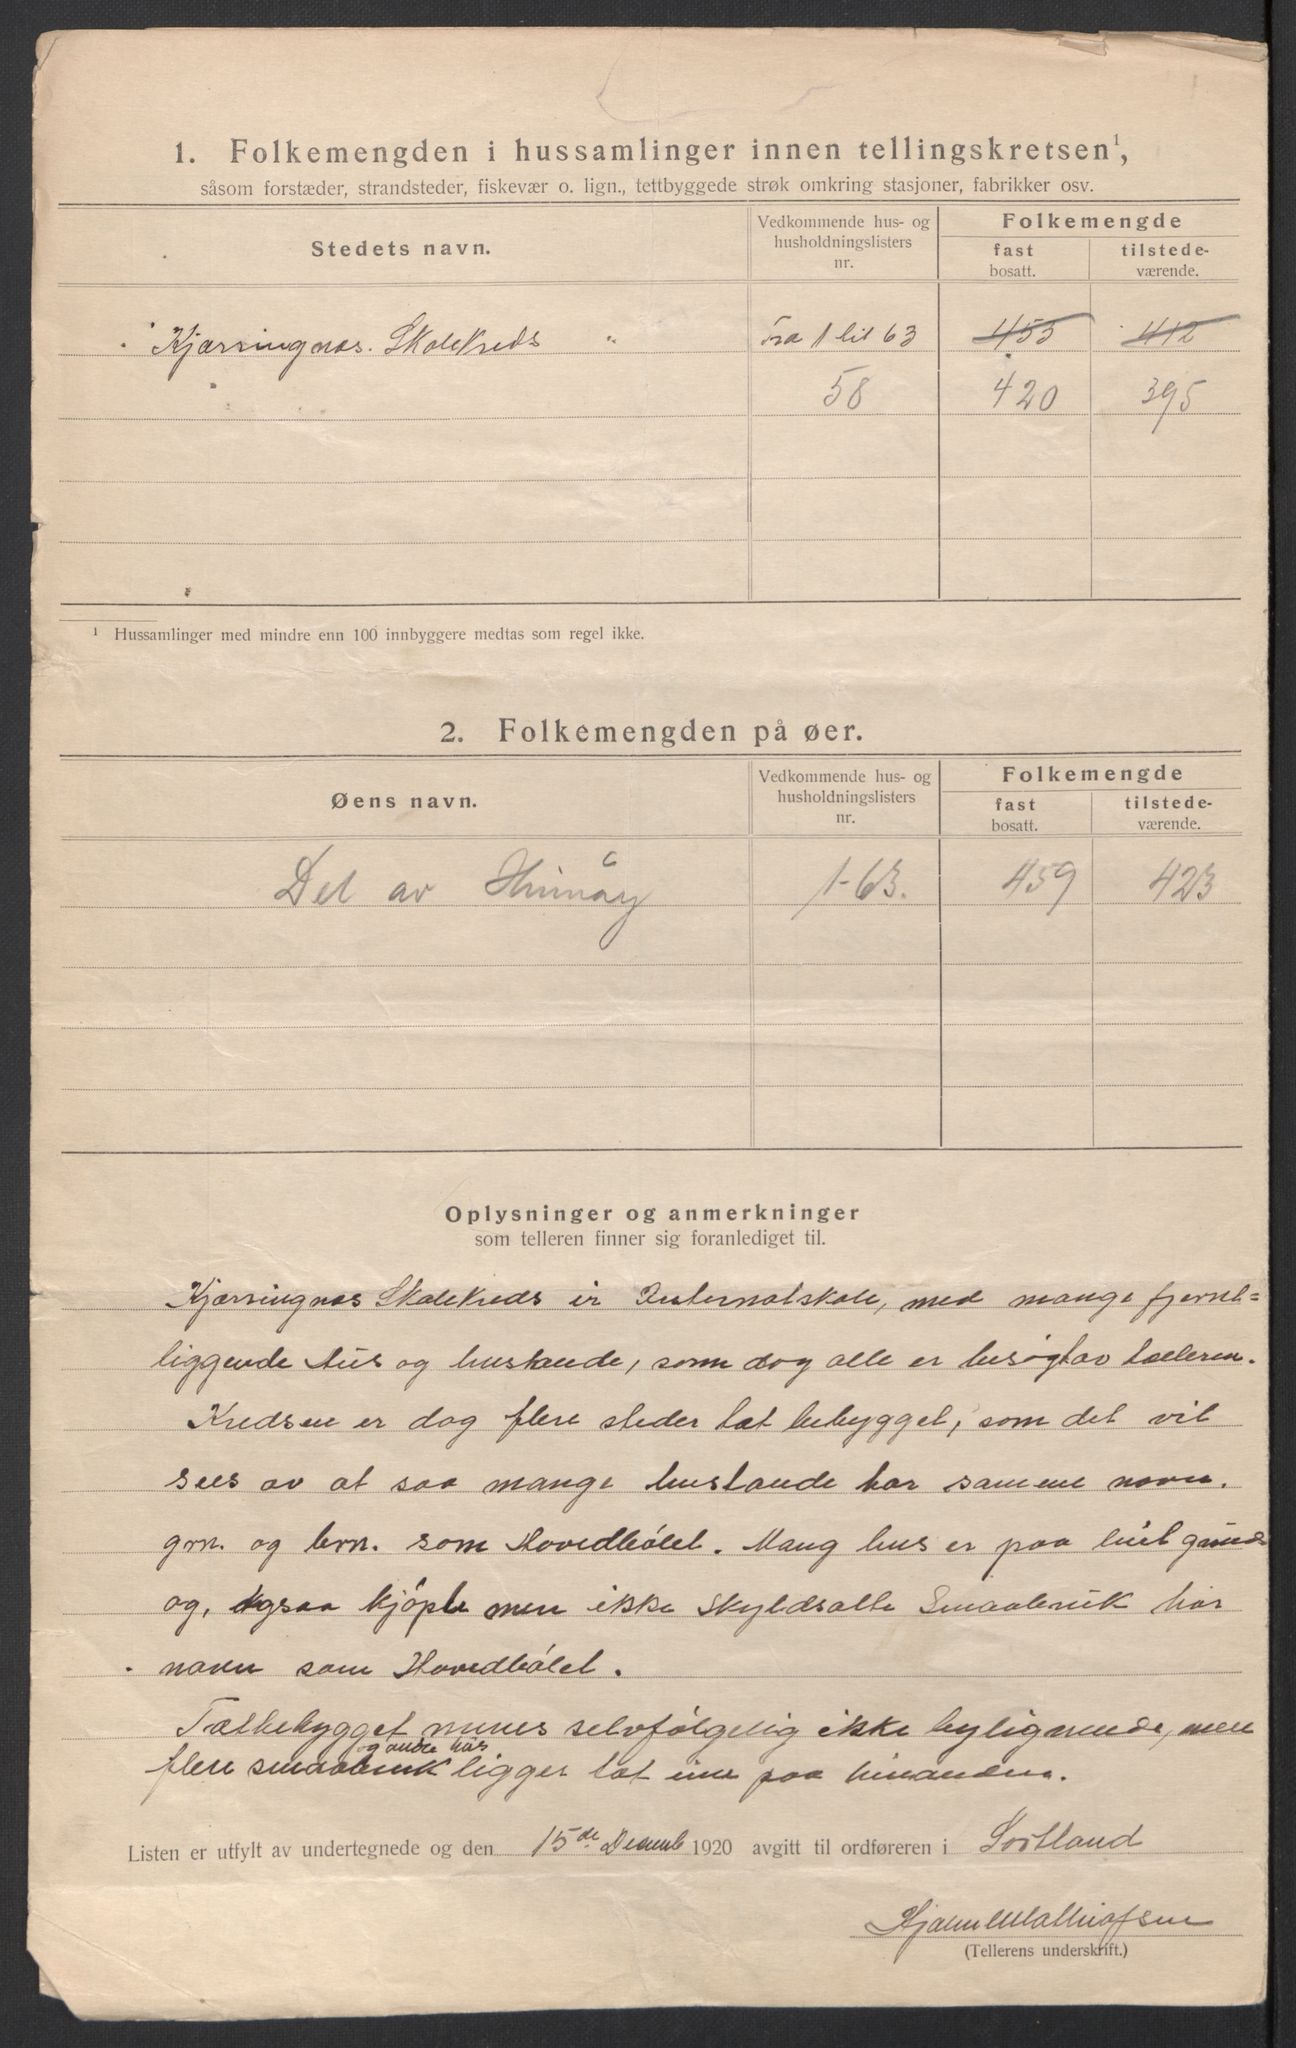 1. Folkemengden i hussamlinger innen tellingskretsen¹,
såsom forstæder, strandsteder, fiskevær o. lign., tettbyggede strøk omkring stasjoner, fabrikker osv.
Stedets navn.
Vedkommende hus- og husholdningslisters nr.
Folkemengde
fast bosatt.
tilstede-værende.
Kjærringnes. Skolekreds " Fra 1 til 63 455 412
58 420 395
¹ Hussamlinger med mindre enn 100 innbyggere medtas som regel ikke.
2. Folkemengden på øer.
Øens navn.
Vedkommende hus- og husholdningslisters nr.
Folkemengde
fast bosatt.
tilstede-værende.
Del av Hinnøy 1-63. 459 423
Oplysninger og anmerkninger
som telleren finner sig foranlediget til.
Kjærringnes Skolekreds er Internatskole, med mange fjernt=
liggende Hus og hustande, som dog alle er besøgt av tælleren.
Kredsen er dog flere steder tæt bebygget, som det vil
sees av at saa mange hustande har samme navn.
grn. og brn. som Hovedbölet. Mang hus er paa leiet grund
og, ogsaa kjöpte men ikke skyldsatte Smaabruk har
navn som Hovedbölet.
Tætbebygget menes selvfölgelig ikke bylignende, men
og andre hus
flere smaabruk ligger tæt inn paa hinanden.
Listen er utfylt av undertegnede og den 15de Decemb 1920 avgitt til ordføreren i Sortland
Hjalm Mathisen
(Tellerens underskrift.)